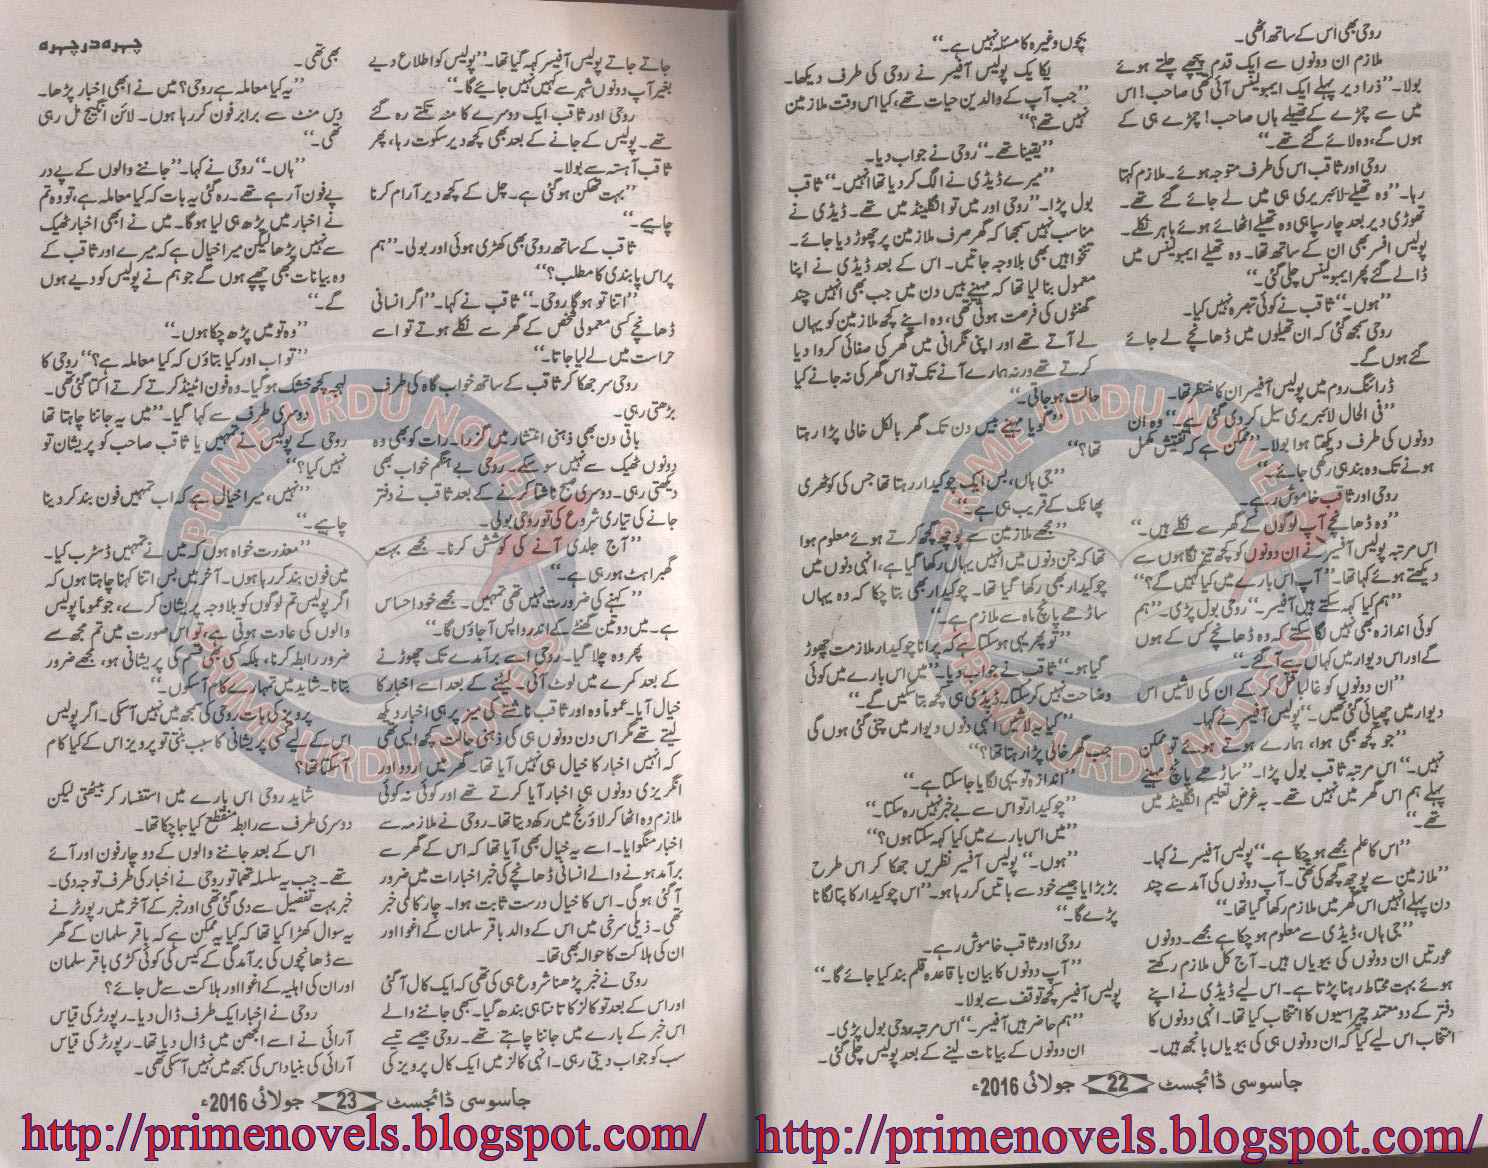 روحی بھی اس کے ساتھ اٹھی۔
ملازم ان دونوں سے ایک قدم پیچھے چلتے ہوئے
بولا۔ ”ذرا دیر پہلے ایک ایمبولینس آئی تھی صاحب! اس
میں سے چمڑے کے تھیلے ہاں صاحب! چمڑے ہی کے
ہوں گے، وہ لائے گئے تھے۔“
روحی اور ثاقب اس کی طرف متوجہ ہوئے۔ ملازم کہتا
رہا۔ ”وہ تھیلے لائبریری ہی میں لے جائے گئے تھے۔
تھوڑی دیر بعد چار سپاہی وہ تھیلے اٹھائے ہوئے باہر نکلے۔
پولیس افسر بھی ان کے ساتھ تھا۔ وہ تھیلے ایمبولینس میں
ڈالے گئے پھر ایمبولینس چلی گئی۔“
”ہوں۔“ ثاقب نے کوئی تبصرہ نہیں کیا۔
روحی سمجھ گئی کہ ان تھیلوں میں ڈھانچے لے جائے
گئے ہوں گے۔
ڈرائنگ روم میں پولیس آفیسر ان کا منتظر تھا۔
”فی الحال لائبریری سیل کر دی گئی ہے۔“ وہ ان
دونوں کی طرف دیکھتا ہوا بولا۔ ”ممکن ہے کہ تفتیش مکمل
ہونے تک وہ بند ہی رکھی جائے۔“
روحی اور ثاقب خاموش رہے۔
”وہ ڈھانچے آپ لوگوں کے گھر سے نکلے ہیں۔“
اس مرتبہ پولیس آفیسر نے ان دونوں کو کچھ تیز نگاہوں سے
دیکھتے ہوئے کہا تھا۔ ”آپ اس بارے میں کیا کہیں گے؟“
”ہم کیا کہہ سکتے ہیں آفیسر۔“ روحی بول پڑی۔ ”ہم
کوئی اندازہ بھی نہیں لگا سکتے کہ وہ ڈھانچے کس کے ہوں
گے اور اس دیوار میں کہاں سے آ گئے۔“
”ان دونوں کو غالباً قتل کر کے ان کی لاشیں اس
دیوار میں چھپائی گئی تھیں۔“ پولیس آفیسر نے کہا۔
”جو کچھ بھی ہوا، ہمارے ہوتے ہوئے تو ممکن
نہیں۔“ اس مرتبہ ثاقب بول پڑا۔ ”ساڑھے پانچ مہینے
پہلے ہم اس گھر میں نہیں تھے۔ بہ غرض تعلیم انگلینڈ میں
تھے۔“
”اس کا علم مجھے ہو چکا ہے۔“ پولیس آفیسر نے کہا۔
”ملازمین سے پوچھ گچھ کی تھی۔ آپ دونوں کی آمد سے چند
دن پہلے انہیں اس گھر میں ملازم رکھا گیا تھا۔“
”جی ہاں، ڈیڈی سے معلوم ہو چکا ہے مجھے۔ دونوں
عورتیں ان دونوں کی بیویاں ہیں۔ آج کل ملازم رکھتے
ہوئے بہت محتاط رہنا پڑتا ہے۔ اس لیے ڈیڈی نے اپنے
دفتر کے دو معتمد چپراسیوں کا انتخاب کیا تھا۔ انہی دونوں کا
انتخاب اس لیے کیا کہ ان دونوں ہی کی بیویاں بانجھ ہیں۔
بچوں وغیرہ کا مسئلہ نہیں ہے۔“
یکایک پولیس آفیسر نے روحی کی طرف دیکھا۔
”جب آپ کے والدین حیات تھے، کیا اس وقت ملازمین
نہیں تھے؟“
”یقیناً تھے۔“ روحی نے جواب دیا۔
”میرے ڈیڈی نے الگ کر دیا تھا انہیں۔“ ثاقب
بول پڑا۔ ”روحی اور میں تو انگلینڈ میں تھے۔ ڈیڈی نے
مناسب نہیں سمجھا کہ گھر صرف ملازمین پر چھوڑ دیا جائے۔
تنخواہیں بھی بلاوجہ جاتیں۔ اس کے بعد ڈیڈی نے اپنا
معمول بنا لیا تھا کہ مہینے بیس دن میں جب بھی انہیں چند
گھنٹوں کی فرصت ہوتی تھی، وہ اپنے کچھ ملازمین کو یہاں
لے آتے تھے اور اپنی نگرانی میں گھر کی صفائی کروا دیا
کرتے تھے ورنہ ہمارے آنے تک تو اس گھر کی نہ جانے کیا
حالت ہو جاتی۔“
”گویا مہینے بیس دن تک گھر بالکل خالی پڑا رہتا
تھا؟“
”جی ہاں، بس ایک چوکیدار رہتا تھا جس کی کوٹھری
پھاٹک کے قریب ہی ہے۔“
”مجھے ملازمین سے پوچھ گچھ کرتے ہوئے معلوم ہوا
تھا کہ جن دنوں میں انہیں یہاں رکھا گیا ہے، انہی دنوں میں
چوکیدار بھی رکھا گیا تھا۔ چوکیدار بھی بتا چکا کہ وہ یہاں
ساڑھے پانچ ماہ سے ملازم ہے۔“
”تو پھر یہی ہو سکتا ہے کہ پرانا چوکیدار ملازمت چھوڑ
گیا ہو۔“ ثاقب نے جواب دیا۔ ”میں اس بارے میں کوئی
وضاحت نہیں کر سکتا۔ ڈیڈی ہی کچھ بتا سکیں گے۔“
”کیا یہ لاشیں انہی دنوں دیوار میں چنی گئی ہوں گی
جب گھر خالی پڑا رہتا تھا؟“
”اندازہ تو یہی لگایا جا سکتا ہے۔“
”چوکیدار تو اس سے بے خبر نہیں رہ سکتا۔“
”میں اس بارے میں کیا کہہ سکتا ہوں؟“
”ہوں۔“ پولیس آفیسر نظریں جھکا کر اس طرح
بڑبڑایا جیسے خود سے باتیں کر رہا ہو۔ ”اس چوکیدار کا پتا لگانا
پڑے گا۔“
روحی اور ثاقب خاموش رہے۔
”آپ دونوں کا بیان باقاعدہ قلم بند کیا جائے گا۔“
پولیس آفیسر کچھ توقف سے بولا۔
”ہم حاضر ہیں آفیسر۔“ اس مرتبہ روحی بول پڑی۔
ان دونوں کے بیانات لینے کے بعد پولیس چلی گئی۔
جاسوسی ڈائجسٹ 22 جولائی 2016ء
http://primenovels.blogspot.com/
چہرہ در چہرہ
جاتے جاتے پولیس آفیسر کہہ گیا تھا۔ ”پولیس کو اطلاع دیے
بغیر آپ دونوں شہر سے کہیں نہیں جائیے گا۔“
روحی اور ثاقب ایک دوسرے کا منہ تکتے رہ گئے
تھے۔ پولیس کے جانے کے بعد بھی کچھ دیر سکوت رہا، پھر
ثاقب آہستہ سے بولا۔
”بہت تھکن ہو گئی ہے۔ چل کے کچھ دیر آرام کرنا
چاہیے۔“
ثاقب کے ساتھ روحی بھی کھڑی ہوئی اور بولی۔ ”ہم
پر اس پابندی کا مطلب؟“
”اتنا تو ہو گا روحی۔“ ثاقب نے کہا۔ ”اگر انسانی
ڈھانچے کسی معمولی شخص کے گھر سے نکلے ہوتے تو اسے
حراست میں لے لیا جاتا۔“
روحی سر جھکا کر ثاقب کے ساتھ خواب گاہ کی طرف
بڑھتی رہی۔
باقی دن بھی ذہنی انتشار میں گزرا۔ رات کو بھی وہ
دونوں ٹھیک سے نہیں سو سکے۔ روحی بے ہنگم خواب بھی
دیکھتی رہی۔ دوسری صبح ناشتا کرنے کے بعد ثاقب نے دفتر
جانے کی تیاری شروع کی تو روحی بولی۔
”آج جلدی آنے کی کوشش کرنا۔ مجھے بہت
گھبراہٹ ہو رہی ہے۔“
”کہنے کی ضرورت نہیں تھی تمہیں۔ مجھے خود احساس
ہے۔ میں دو تین گھنٹے کے اندر واپس آ جاؤں گا۔“
پھر وہ چلا گیا۔ روحی اسے برآمدے تک چھوڑنے
کے بعد کمرے میں لوٹ آئی۔ لیٹنے کے بعد اسے اخبار کا
خیال آیا۔ عموماً وہ اور ثاقب ناشتے کی میز پر ہی اخبار دیکھ
لیتے تھے مگر اس دن دونوں ہی کی ذہنی حالت کچھ ایسی تھی
کہ انہیں اخبار کا خیال ہی نہیں آیا تھا۔ گھر میں اردو اور
انگریزی دونوں ہی اخبار آیا کرتے تھے اور کوئی نہ کوئی
ملازم وہ اٹھا کر لاؤنج میں رکھ دیتا تھا۔ روحی نے ملازمہ سے
اخبار منگوایا۔ اسے یہ خیال بھی آیا تھا کہ اس کے گھر سے
برآمد ہونے والے انسانی ڈھانچے کی خبر اخبارات میں ضرور
آ گئی ہو گی۔ اس کا خیال درست ثابت ہوا۔ چار کالمی خبر
تھی۔ ذیلی سرخی میں اس کے والد باقر سلمان کے اغوا اور
ان کی ہلاکت کا حوالہ بھی تھا۔
روحی نے خبر پڑھنا شروع ہی کی تھی کہ ایک کال آ گئی
اور اس کے بعد تو کالز کا تانتا ہی بندھ گیا۔ سبھی جاننے والے
اس خبر کے بارے میں جاننا چاہتے تھے۔ روحی جیسے تیسے
سب کو جواب دیتی رہی۔ انہی کالز میں ایک کال پرویز کی
بھی تھی۔
”یہ کیا معاملہ ہے روحی؟ میں نے ابھی اخبار پڑھا۔
دس منٹ سے برابر فون کر رہا ہوں۔ لائن انگیج مل رہی
تھی۔“
”ہاں۔“ روحی نے کہا۔ ”جاننے والوں کے پے در
پے فون آ رہے تھے۔ رہ گئی یہ بات کہ کیا معاملہ ہے، تو وہ تم
نے اخبار میں پڑھ ہی لیا ہو گا۔ میں نے ابھی اخبار ٹھیک
سے نہیں پڑھا لیکن میرا خیال ہے کہ میرے اور ثاقب کے
وہ بیانات بھی چھپے ہوں گے جو ہم نے پولیس کو دیے ہوں
گے۔“
”وہ تو میں پڑھ چکا ہوں۔“
”تو اب اور کیا بتاؤں کہ کیا معاملہ ہے؟“ روحی کا
لہجہ کچھ خشک ہو گیا۔ وہ فون اٹینڈ کرتے کرتے اکتا گئی تھی۔
دوسری طرف سے کہا گیا۔ ”میں یہ جاننا چاہتا تھا
روحی کے پولیس نے تمہیں یا ثاقب صاحب کو پریشان تو
نہیں کیا؟“
”نہیں، میرا خیال ہے کہ اب تمہیں فون بند کر دینا
چاہیے۔“
”معذرت خواہ ہوں کہ میں نے تمہیں ڈسٹرب کیا۔
میں فون بند کر رہا ہوں۔ آخر میں بس اتنا کہنا چاہتا ہوں کہ
اگر پولیس تم لوگوں کو بلاوجہ پریشان کرے، جو عموماً پولیس
والوں کی عادت ہوتی ہے، تو اس صورت میں تم مجھ سے
ضرور رابطہ کرنا، بلکہ کسی بھی قسم کی پریشانی ہو، مجھے ضرور
بتانا۔ شاید میں تمہارے کام آ سکوں۔“
پرویز کی بات روحی کی سمجھ میں نہیں آ سکی۔ اگر پولیس
اس کے لیے کسی پریشانی کا سبب بنتی تو پرویز اس کے کیا کام
آ سکتا تھا؟
شاید روحی اس بارے میں استفسار کر بیٹھتی لیکن
دوسری طرف سے رابطہ منقطع کیا جا چکا تھا۔
اس کے بعد جاننے والوں کے دو چار فون اور آئے
تھے۔ جب یہ سلسلہ تھما تو روحی نے اخبار کی طرف توجہ دی۔
خبر بہت تفصیل سے دی گئی تھی اور خبر کے آخر میں رپورٹر نے
یہ سوال کھڑا کیا تھا کہ کیا یہ ممکن ہے کہ باقر سلمان کے گھر
سے ڈھانچوں کی برآمدگی کے کیس کی کوئی کڑی باقر سلمان
اور ان کی اہلیہ کے اغوا اور ہلاکت سے مل جائے؟
روحی نے اخبار ایک طرف ڈال دیا۔ رپورٹر کی قیاس
آرائی نے اسے الجھن میں ڈال دیا تھا۔ رپورٹر کی قیاس
آرائی کی بنیاد اس کی سمجھ میں نہیں آ سکی تھی۔
جاسوسی ڈائجسٹ 23 جولائی 2016ء
http://primenovels.blogspot.com/
PRIME URDU NOVELS
PRIME URDU NOVELS
PRIME URDU NOVELS
PRIME URDU NOVELS